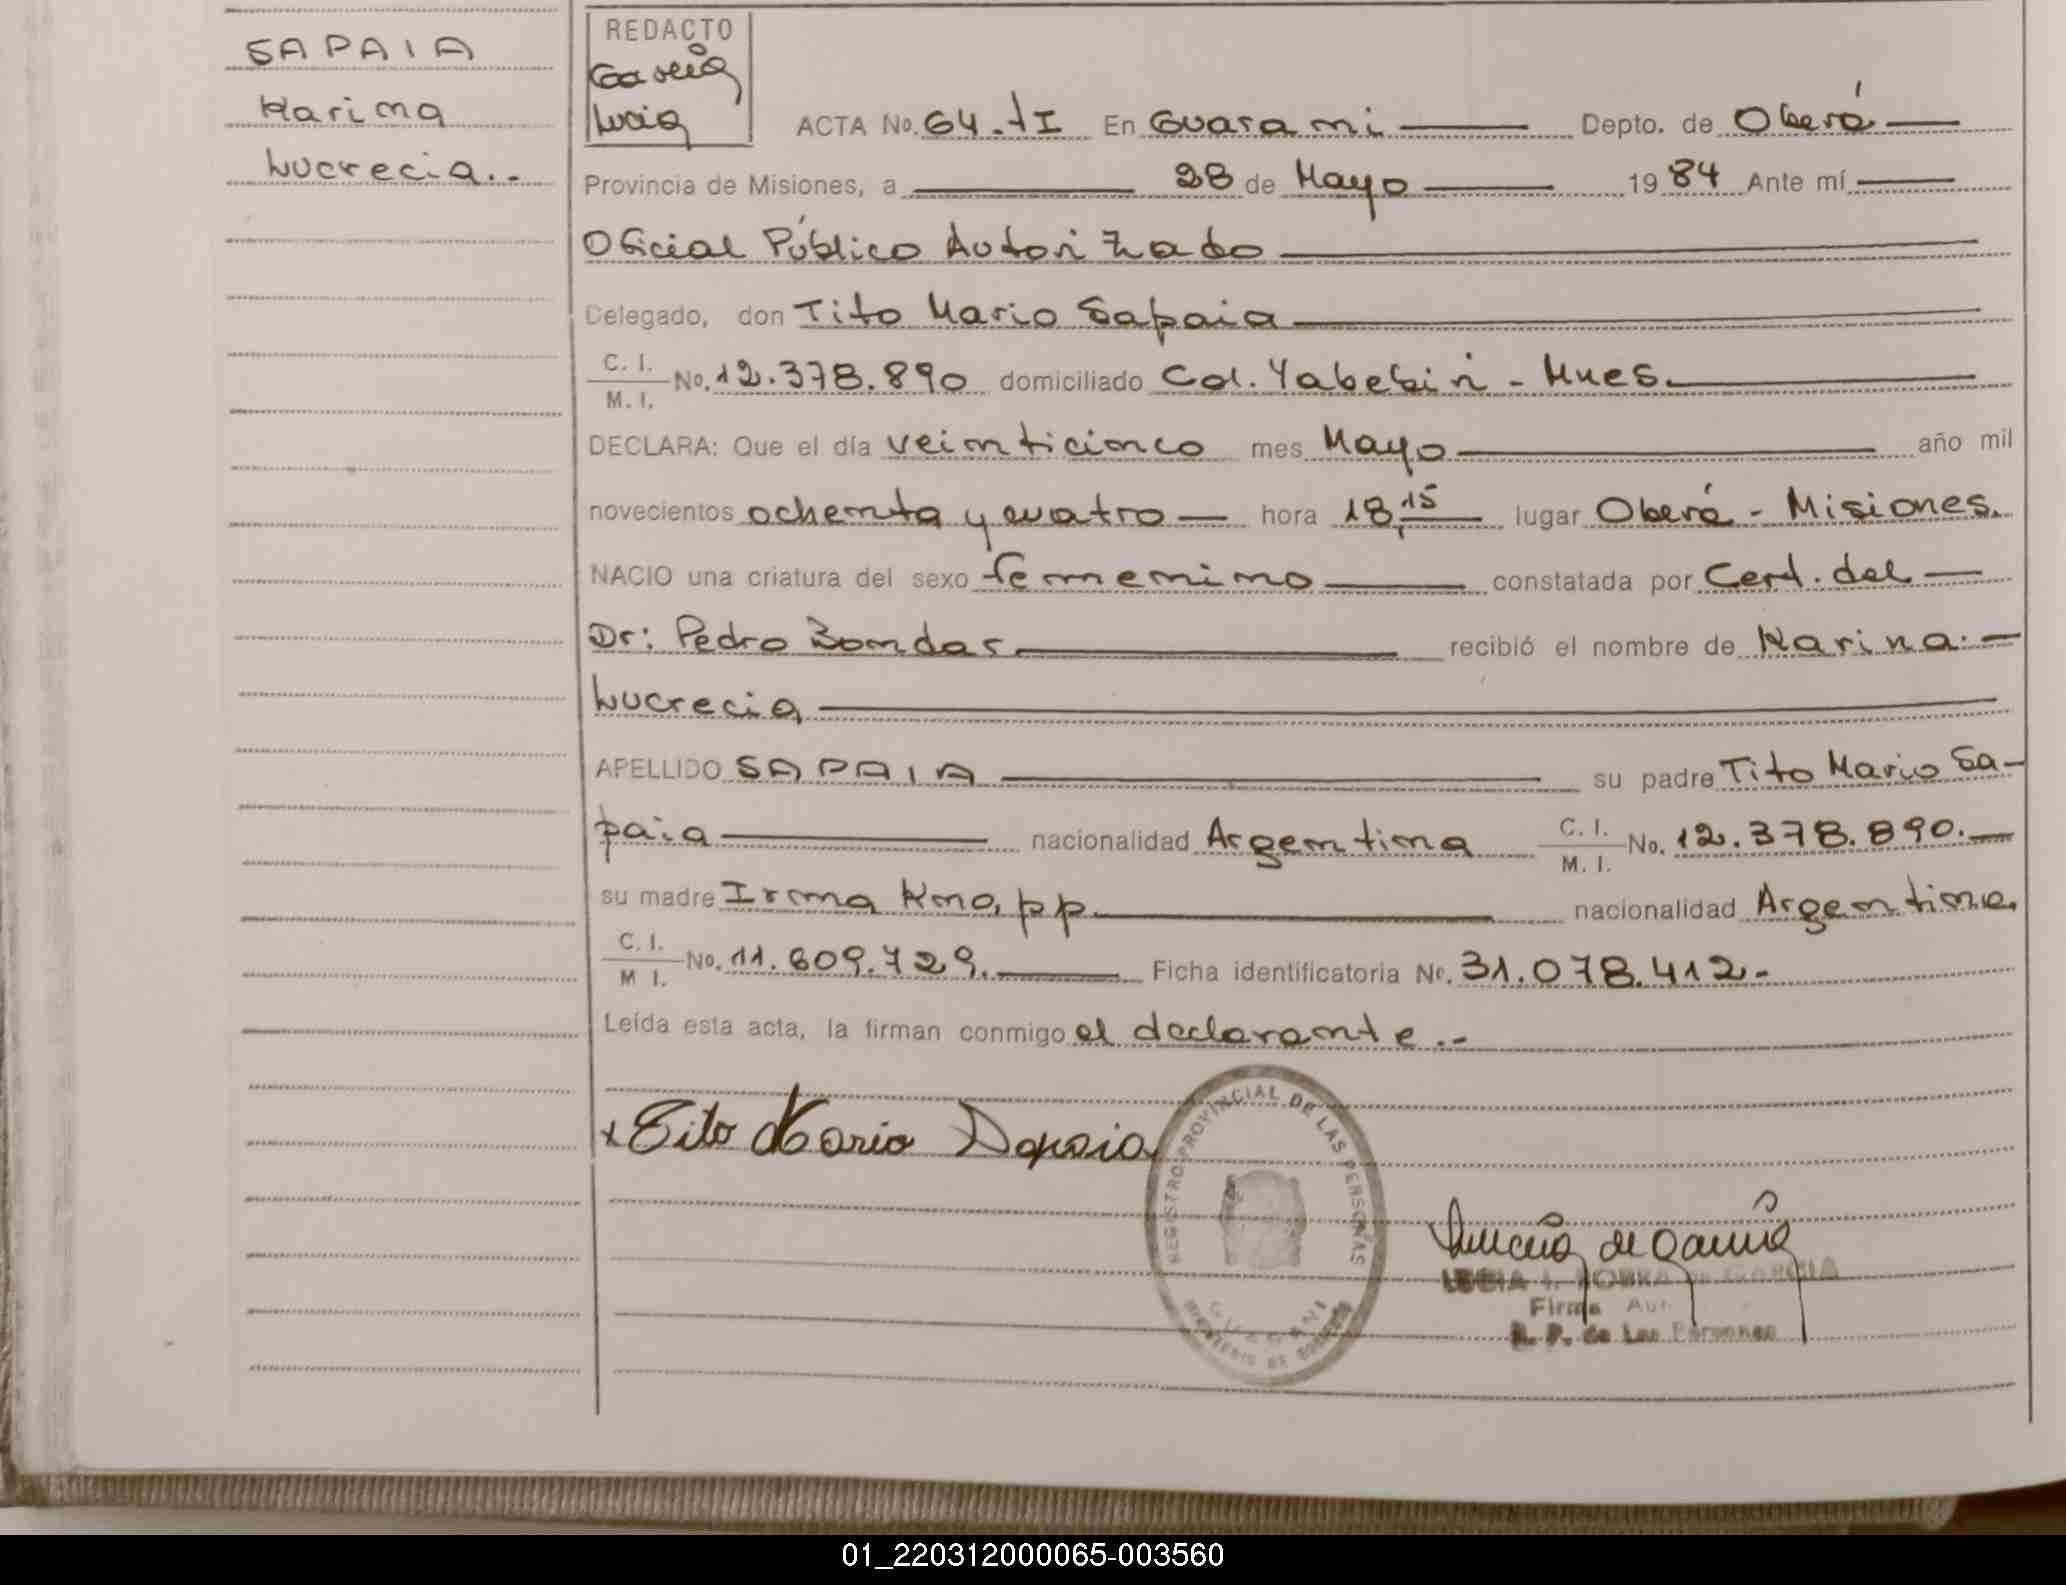 SAPAIA
Karina
Lucrecia..-
REDACTO
Garcia
Lucia
ACTA No. 64.-tI En Guarani Depto. de Oberá
Provincia de Misiones, a 28 de Mayo 1984 Ante mí
Oficial Público Autorizado
Delegado, don Tito Mario Sapaia
C. I.
M. I. No. 12.378.890 domiciliado Col. Yabebiri - Mnes.
DECLARA: Que el día veinticinco mes Mayo año mil
novecientos ochenta y cuatro hora 18,15 lugar Oberá - Misiones.
NACIO una criatura del sexo femenino constatada por Cert. del
Dr: Pedro Bondar recibió el nombre de Karina.
Lucrecia
APELLIDO SAPAIA su padre Tito Mario Sa-
paia nacionalidad Argentina C. I.
M. I. No. 12.378.890.
su madre Irma Knapp nacionalidad Argentina.
C. I.
M I. No. 11.609.729. Ficha identificatoria Nº. 31.078.412.-
Leída esta acta, la firman conmigo el declarante.-
x Tito Mario Sapaia
REGISTRO PROVINCIAL DE LAS PERSONAS
GUARANI
MINISTERIO DE GOBIERNO
de Garcia
LUCIA I. de GARCIA
Firma Aut.
R. P. de Las Personas
01_220312000065-003560